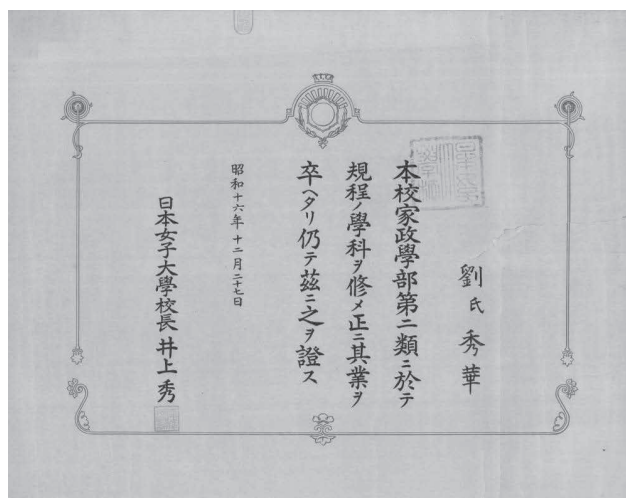 劉氏秀華
本校家政學部第二類ニ於テ
規程ノ學科ヲ修メ正ニ其業ヲ
卒ヘタリ仍テ茲ニ之ヲ證ス
昭和十六年十二月二十七日
日本女子大學校長 井上秀